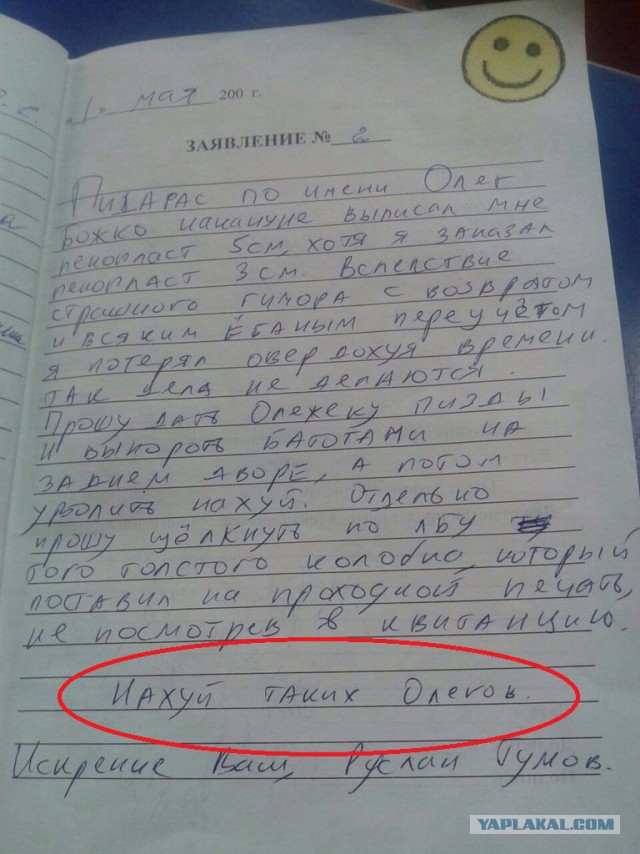 "1" мая 200 г.
ЗАЯВЛЕНИЕ № 2
Пидарас по имени Олег
Божко накануне выписал мне
пенопласт 5см, хотя я заказал
пенопласт 3см. Вспелствие
страшного гимора с возвратом
и всяким ёбаным переучётом
я потерял овердохуя времени.
так дела не делаются.
Прошу дать Олежеку пизды
и выпороть батогами на
заднем дворе, а потом
уволить нахуй. Отдельно
прошу щёлкнуть по лбу
того толстого колобка, который
поставил на проходной печать,
не посмотрев в квитанцию.
Нахуй таких Олегов.
Искренне Ваш, Руслан Гумов.
YAPLAKAL.COM